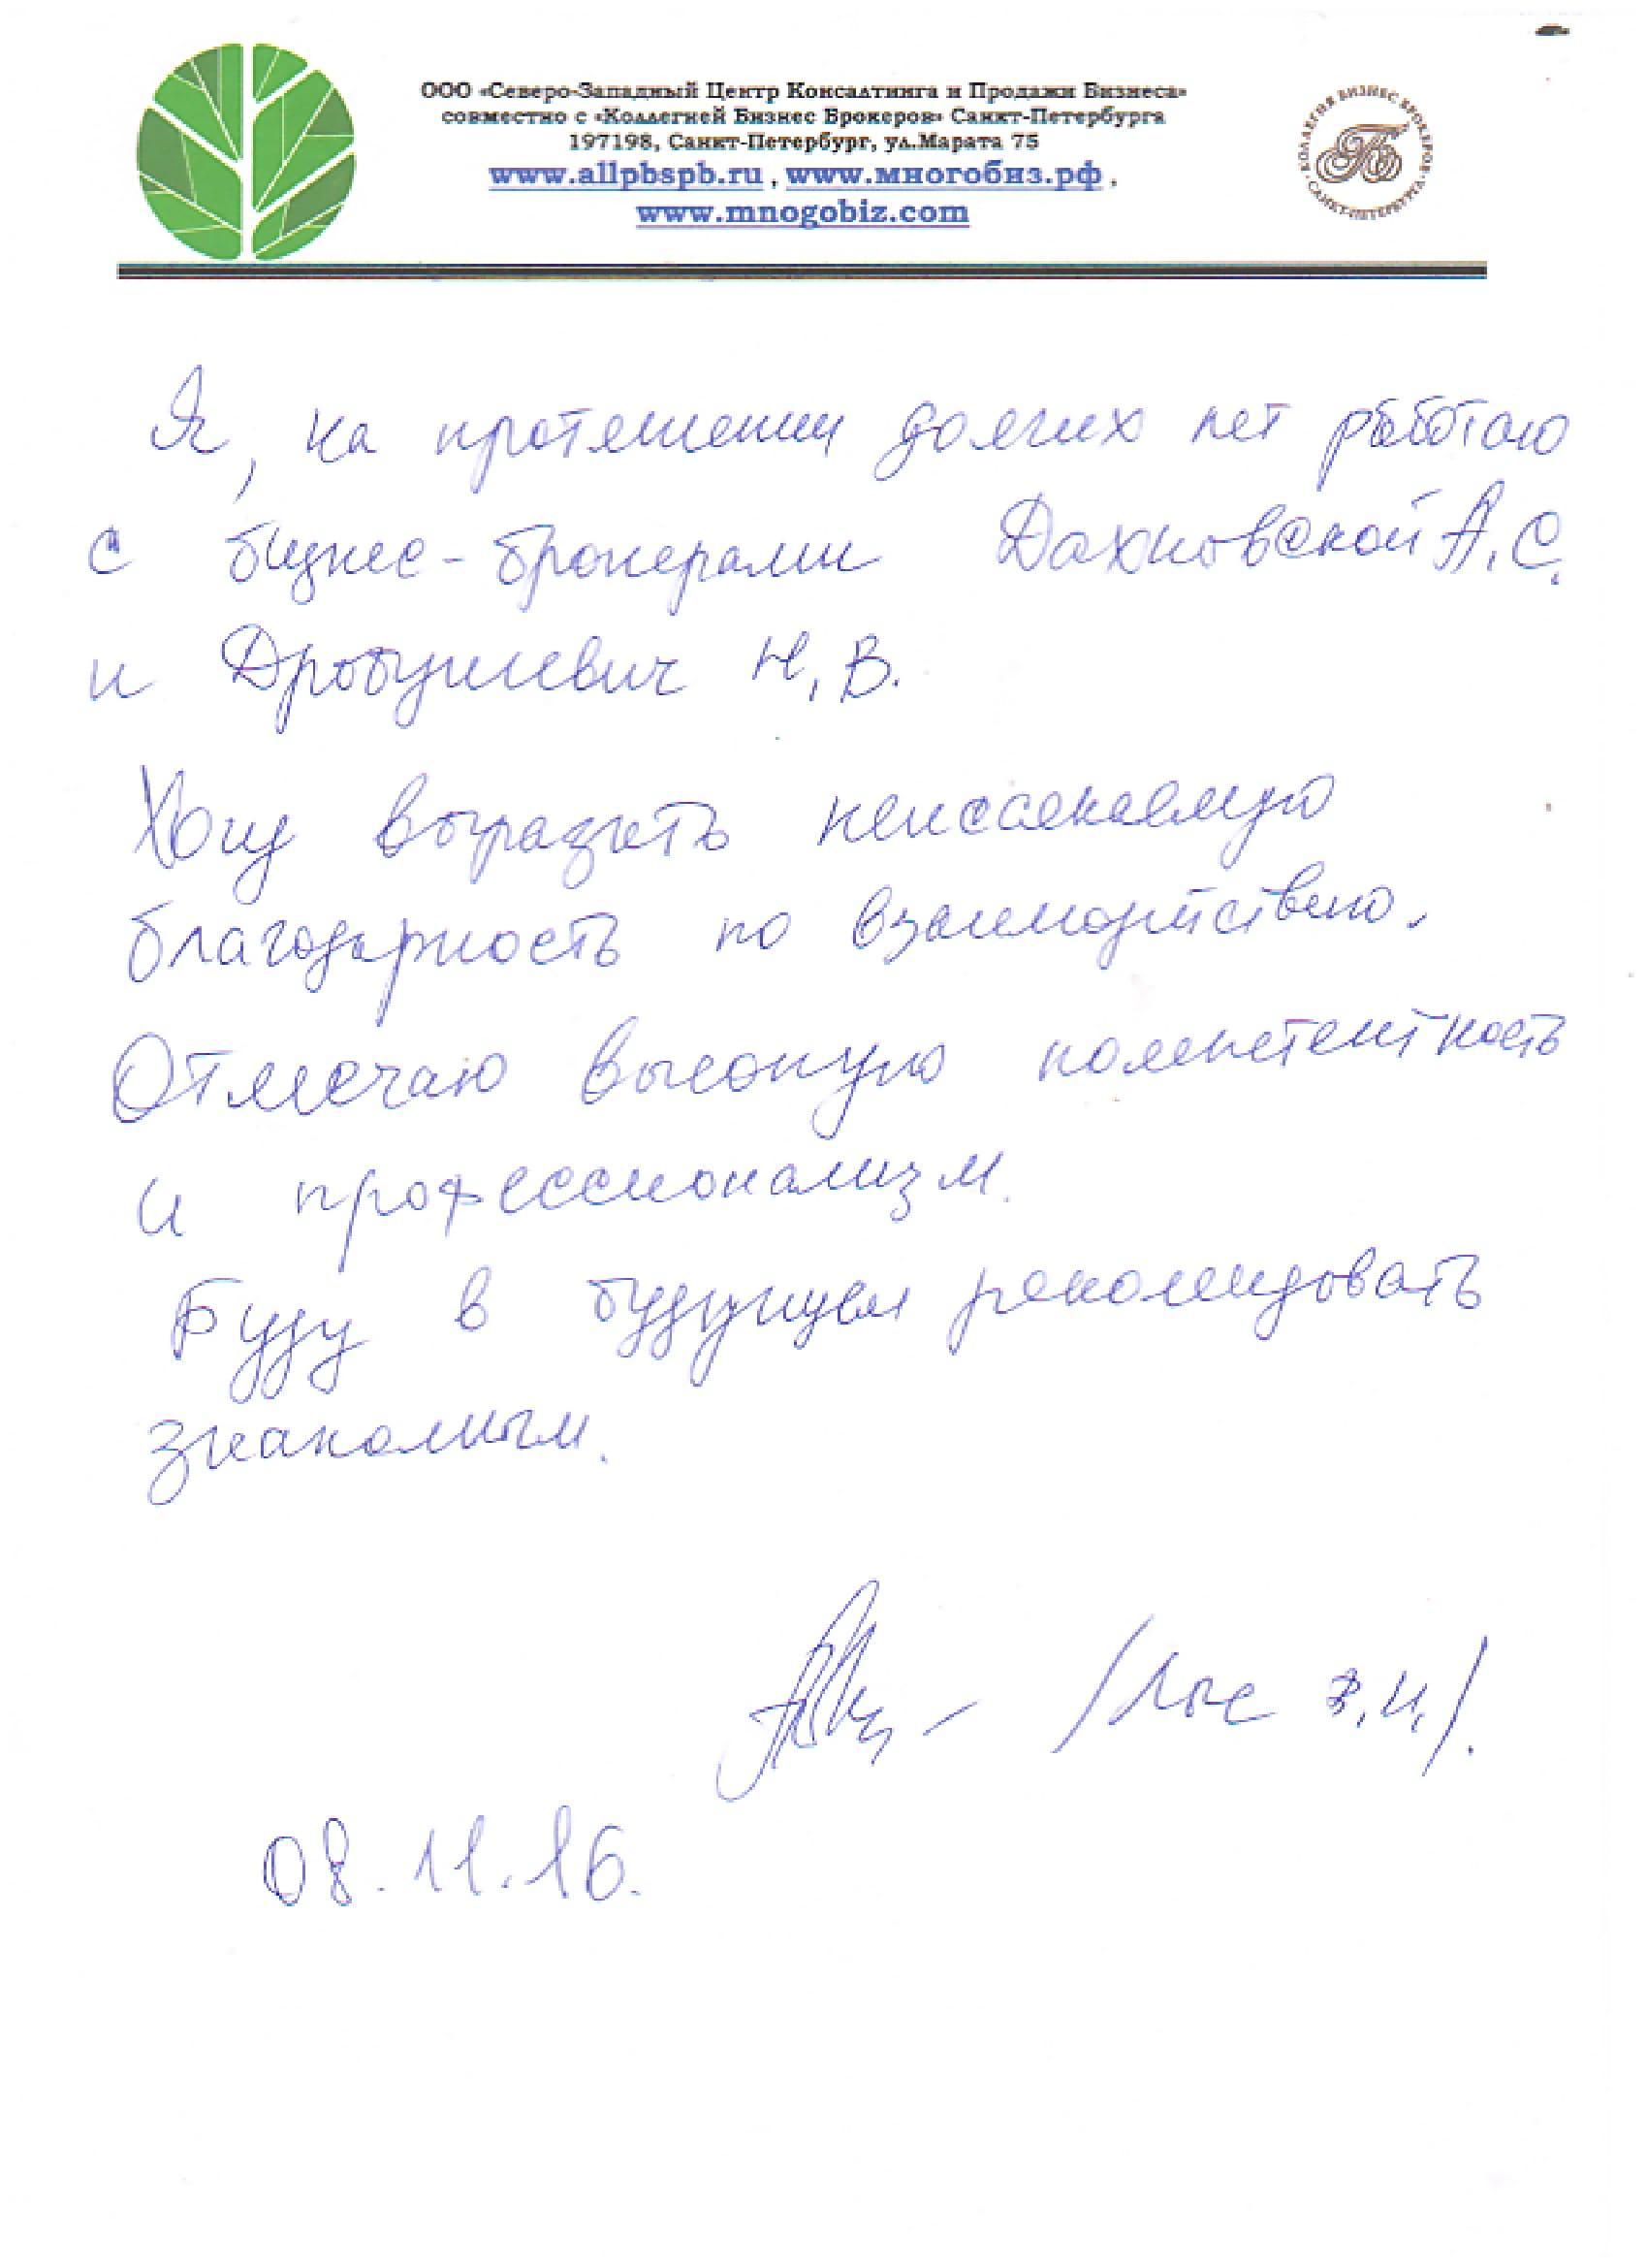 ООО «Северо-Западный Центр Консалтинга и Продажи Бизнеса»
совместно с «Коллегией Бизнес Брокеров» Санкт-Петербурга
197198, Санкт-Петербург, ул.Марата 75
www.allpbspb.ru , www.многобиз.рф ,
www.mnogobiz.com
КОЛЛЕГИЯ БИЗНЕС БРОКЕРОВ
САНКТ-ПЕТЕРБУРГА
Я, на протяжении долгих лет работаю
с бизнес-брокерами Дахновской А.С.
и Дробушевич Н.В.
Хочу выразить неиссекаемую
благодарность по взаимодействию.
Отмечаю высокую компетентность
и профессионализм.
Буду в будущем рекомендовать
знакомым.
/Лыс И./.
08.11.16.